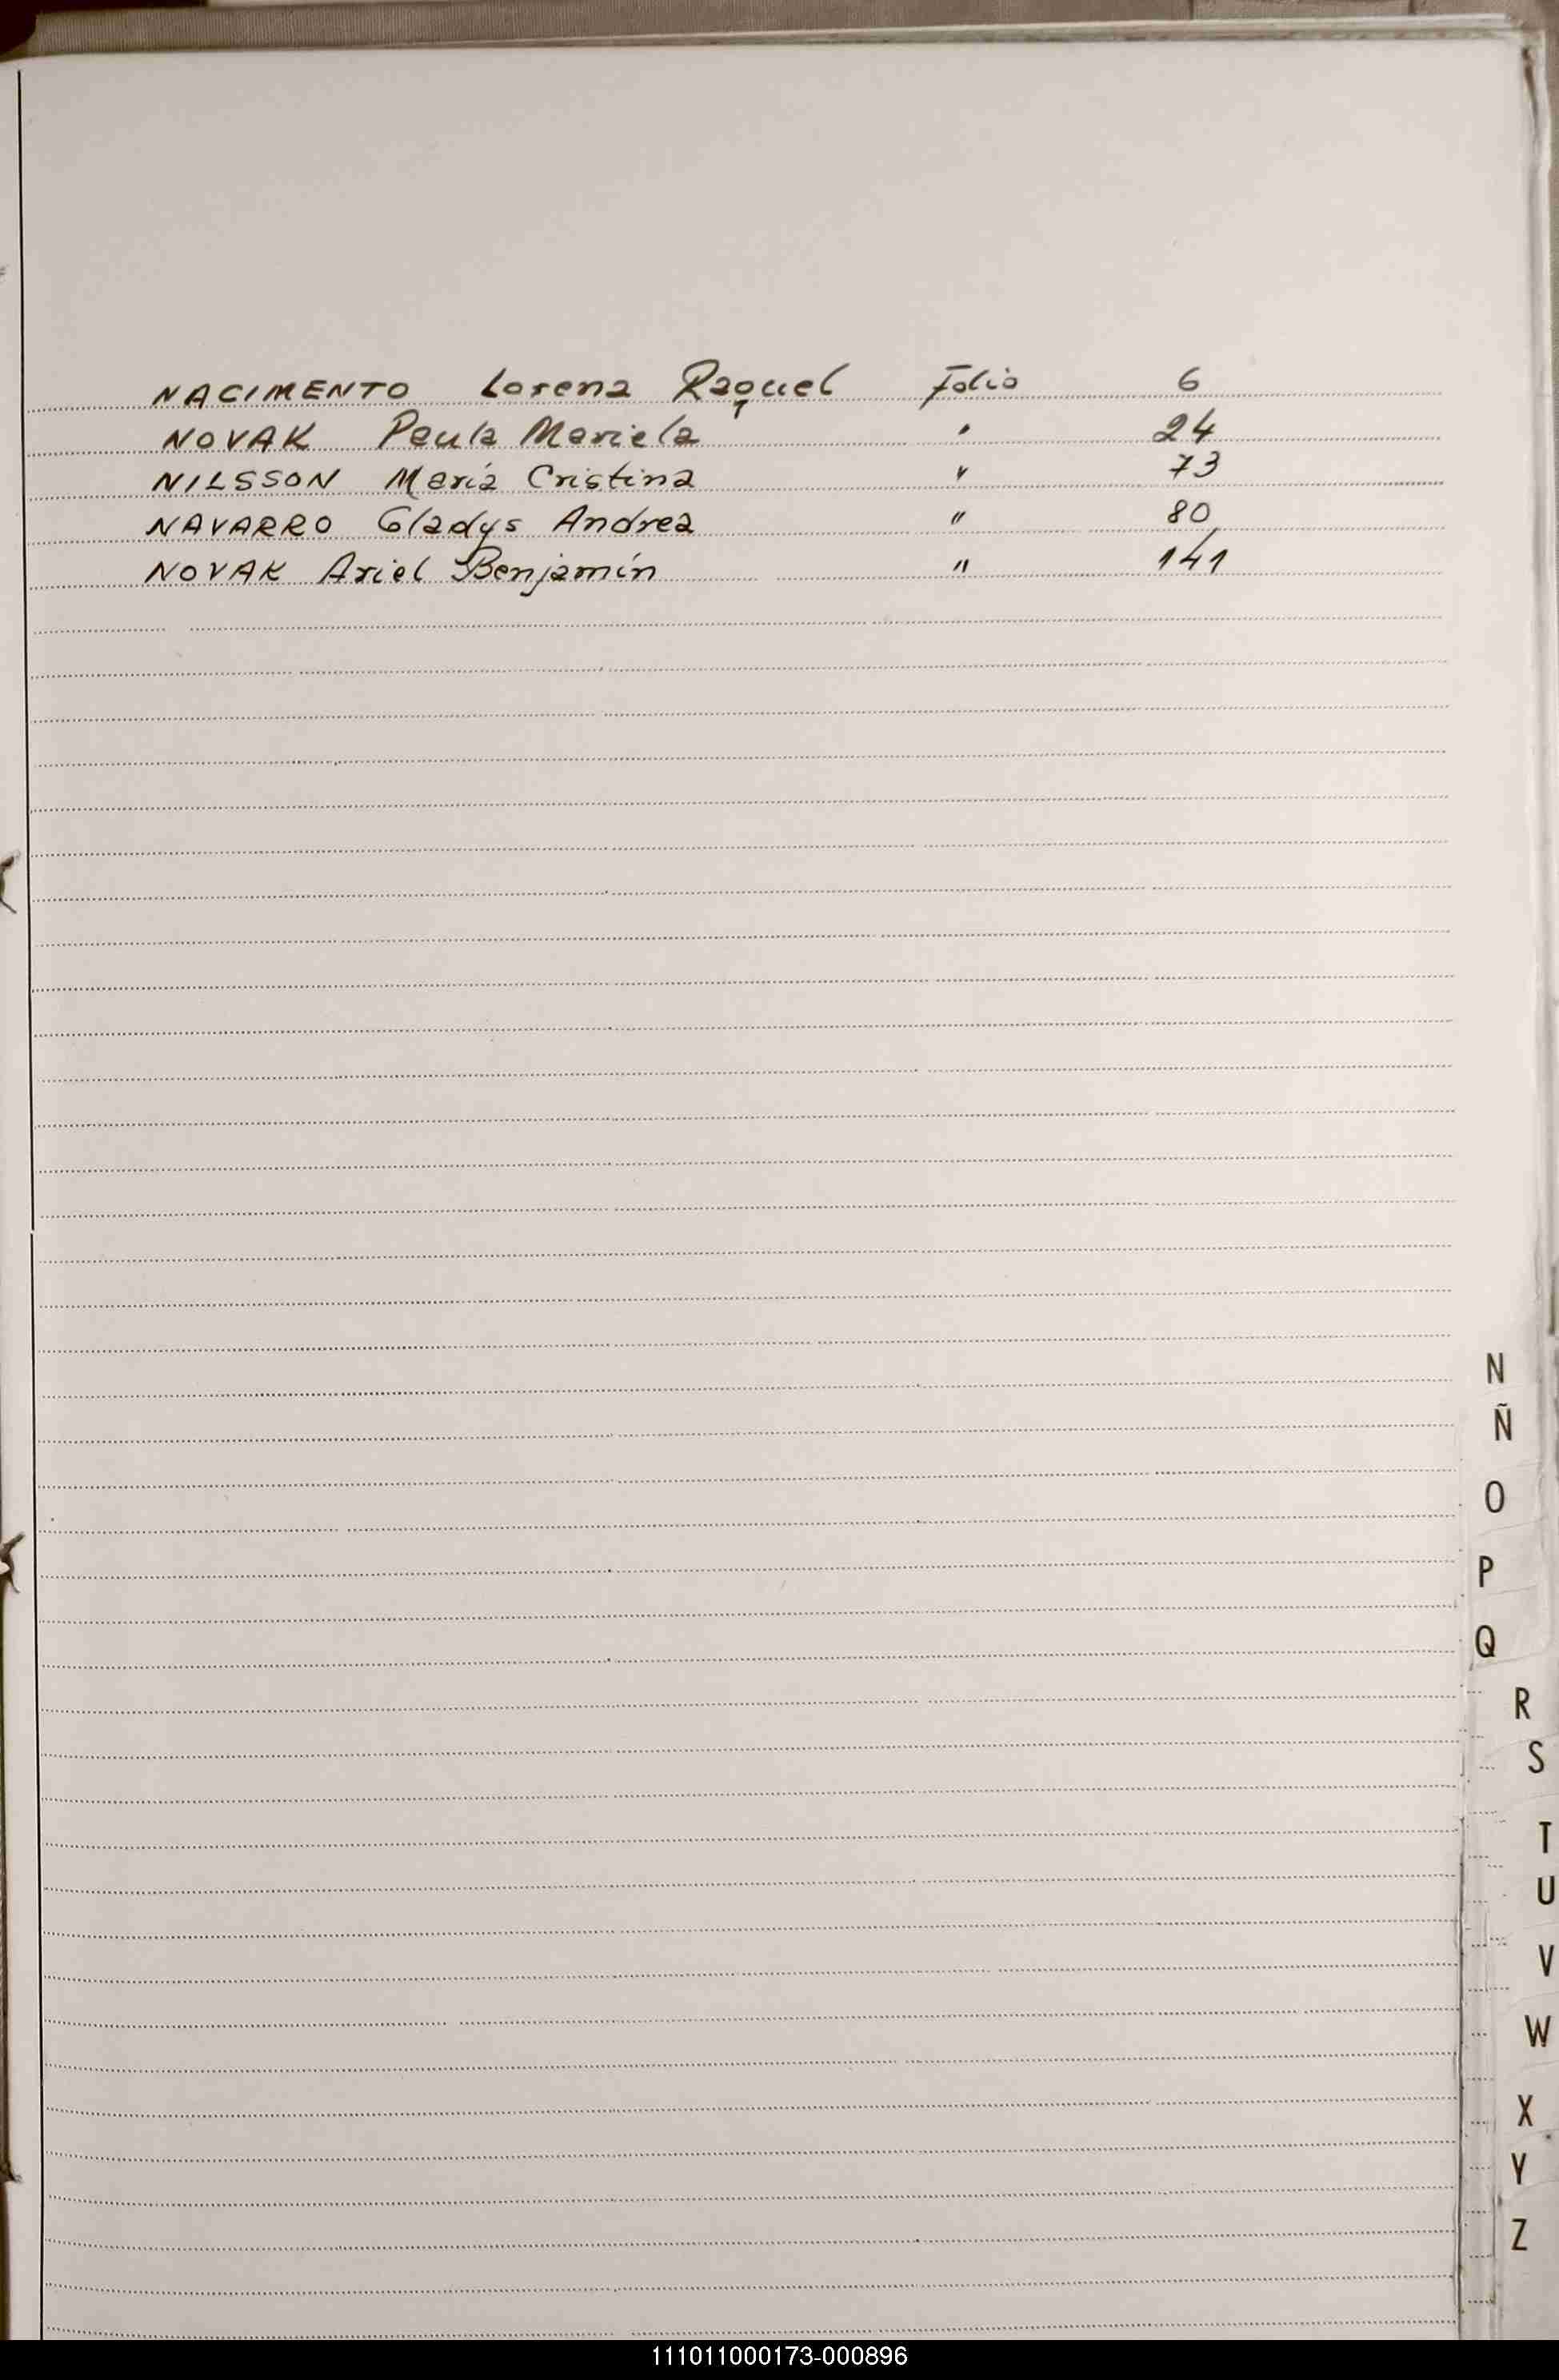 NACIMENTO Lorena Raquel Folio 6
NOVAK Paula Mariela " 24
NILSSON María Cristina " 73
NAVARRO Gladys Andrea " 80
NOVAK Ariel Benjamín " 141
N
Ñ
O
P
Q
R
S
T
U
V
W
X
Y
Z
111011000173-000896